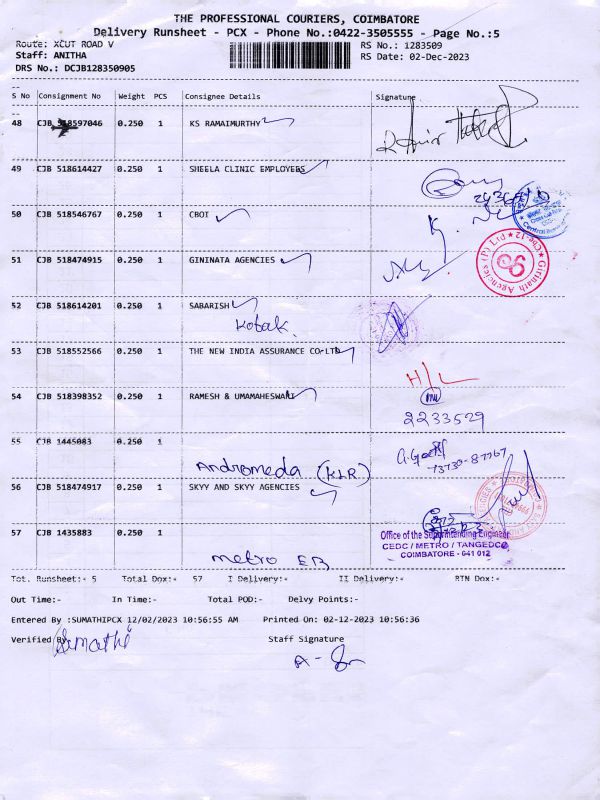 THE PROFESSIONAL COURIERS, COIMBATORE
Delivery Runsheet - PCX - Phone No.:0422-3505555 - Page No.:5
Route: XCUT ROAD V RS No.: 1283509
Staff: ANITHA RS Date: 02-Dec-2023
DRS No.: DCJB128350905
S No Consignment No Weight PCS Consignee Details Signature
48 CJB 518597046 0.250 1 KS RAMAIMURTHY
49 CJB 518614427 0.250 1 SHEELA CLINIC EMPLOYEES
50 CJB 518546767 0.250 1 CBOT
51 CJB 518474915 0.250 1 GININATA AGENCIES
Girinath Agencies (P) Ltd Cbe-12
52 CJB 518614201 0.250 1 SABARISH
Kotak
53 CJB 518552566 0.250 1 THE NEW INDIA ASSURANCE CO-LTD
H/L
54 CJB 518398352 0.250 1 RAMESH & UMAMAHESWARI
2233529
55 CJB 1445083 0.250 1
Andromeda (KLR)
56 CJB 518474917 0.250 1 SKYY AND SKYY AGENCIES
57 CJB 1435883 0.250 1
Office of the Superintending Engineer
CEDC / METRO / TANGEDCO
COIMBATORE - 641 012
metro EB
Tot. Runsheet:< 5 Total Dox:< 57 I Delivery:< II Delivery:< RTN Dox:<
Out Time:- In Time:- Total POD:- Delvy Points:-
Entered By :SUMATHIPCX 12/02/2023 10:56:55 AM Printed On: 02-12-2023 10:56:36
Verified By Sumathi Staff Signature